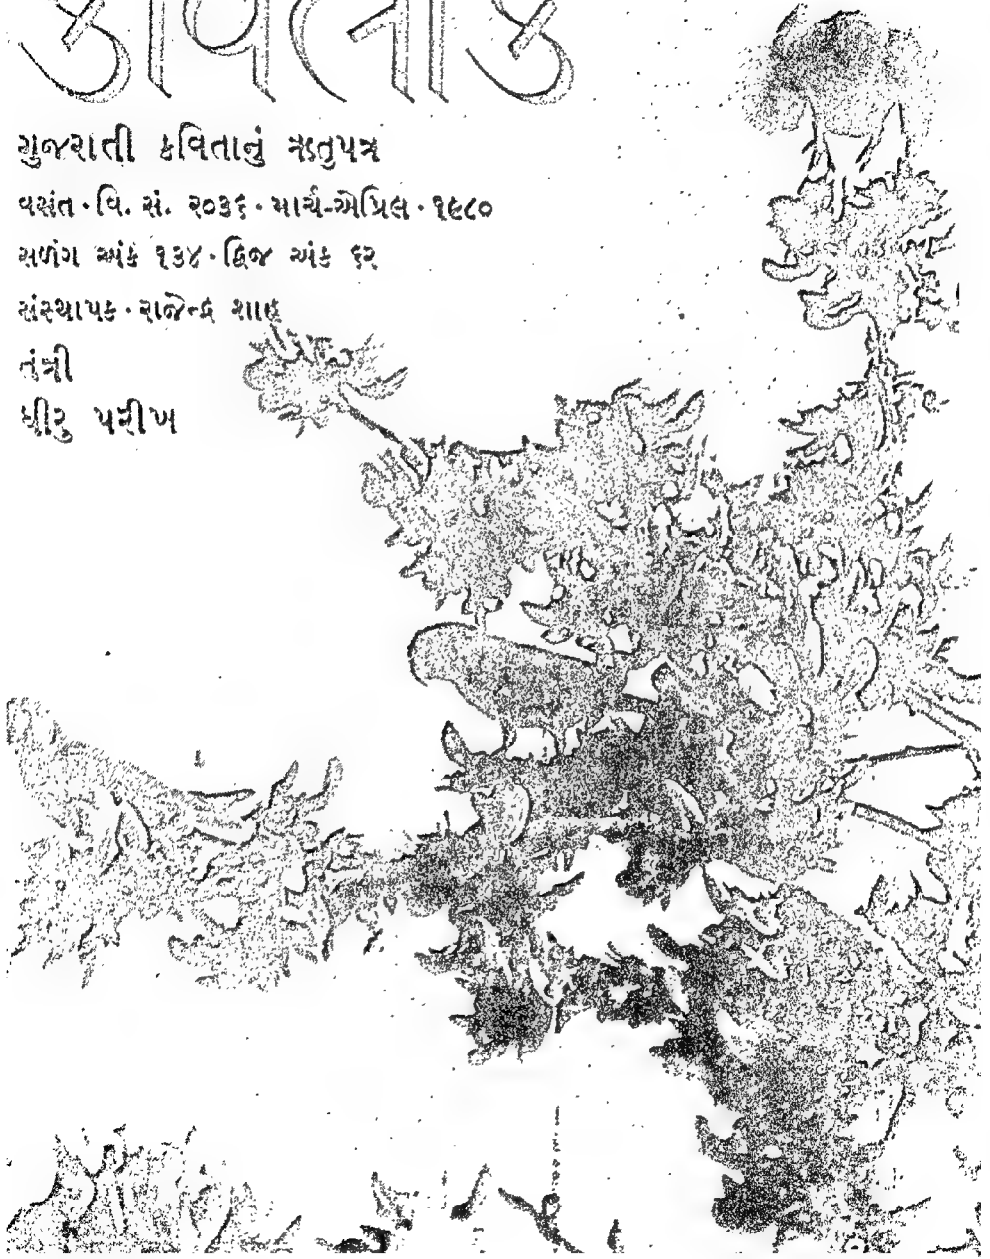 કવિલોક
ગુજરાતી કવિતાનું ઋતુપત્ર
વસંત · વિ. સં. ૨૦૩૬ · માર્ચ-એપ્રિલ · ૧૯૮૦
સળંગ અંક ૧૩૪ · દ્વિજ અંક ૬૨
સંસ્થાપક · રાજેન્દ્ર શાહ
તંત્રી
ધીરુ પરીખ